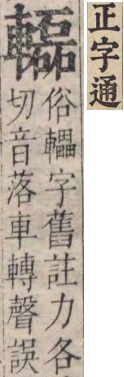 正字通
俗字舊註力各
切音落車轉聲誤